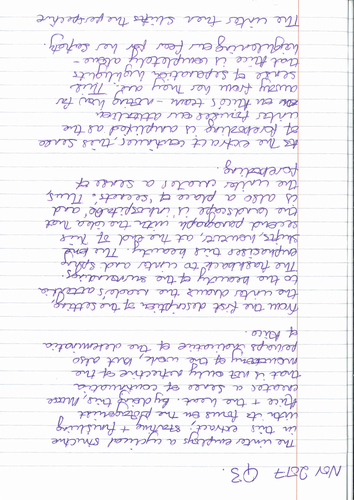 Nov 2017 Q3.
The writer employs a cyclical structure
in this extract, starting + finishing
with its focus on the protagonist
Alice + the heat. By doing this, Moore
creates a sense of continuation
that is not only reflective of the
monotony of the work, but also
perhaps indicative of the determination
of Alice.
From the first description of the setting,
the writer draws the reader's attention
to the beauty of the surroundings.
The flashback to winter and spring
emphasises this beauty. The
shifts, however, at the end of this
second paragraph with the idea that
the landscape is inhospitable and
is also a place of 'secrets'. Thus
the writer creates a sense of
foreboding.
As the extract continues, this sense
of foreboding is amplified as the
writer focuses our attention
on Alice's team - noting how far
away from her they are. This
sense of separation highlights
that Alice is completely alone -
heightening our fear for her safety.
The writer then shifts the perspective